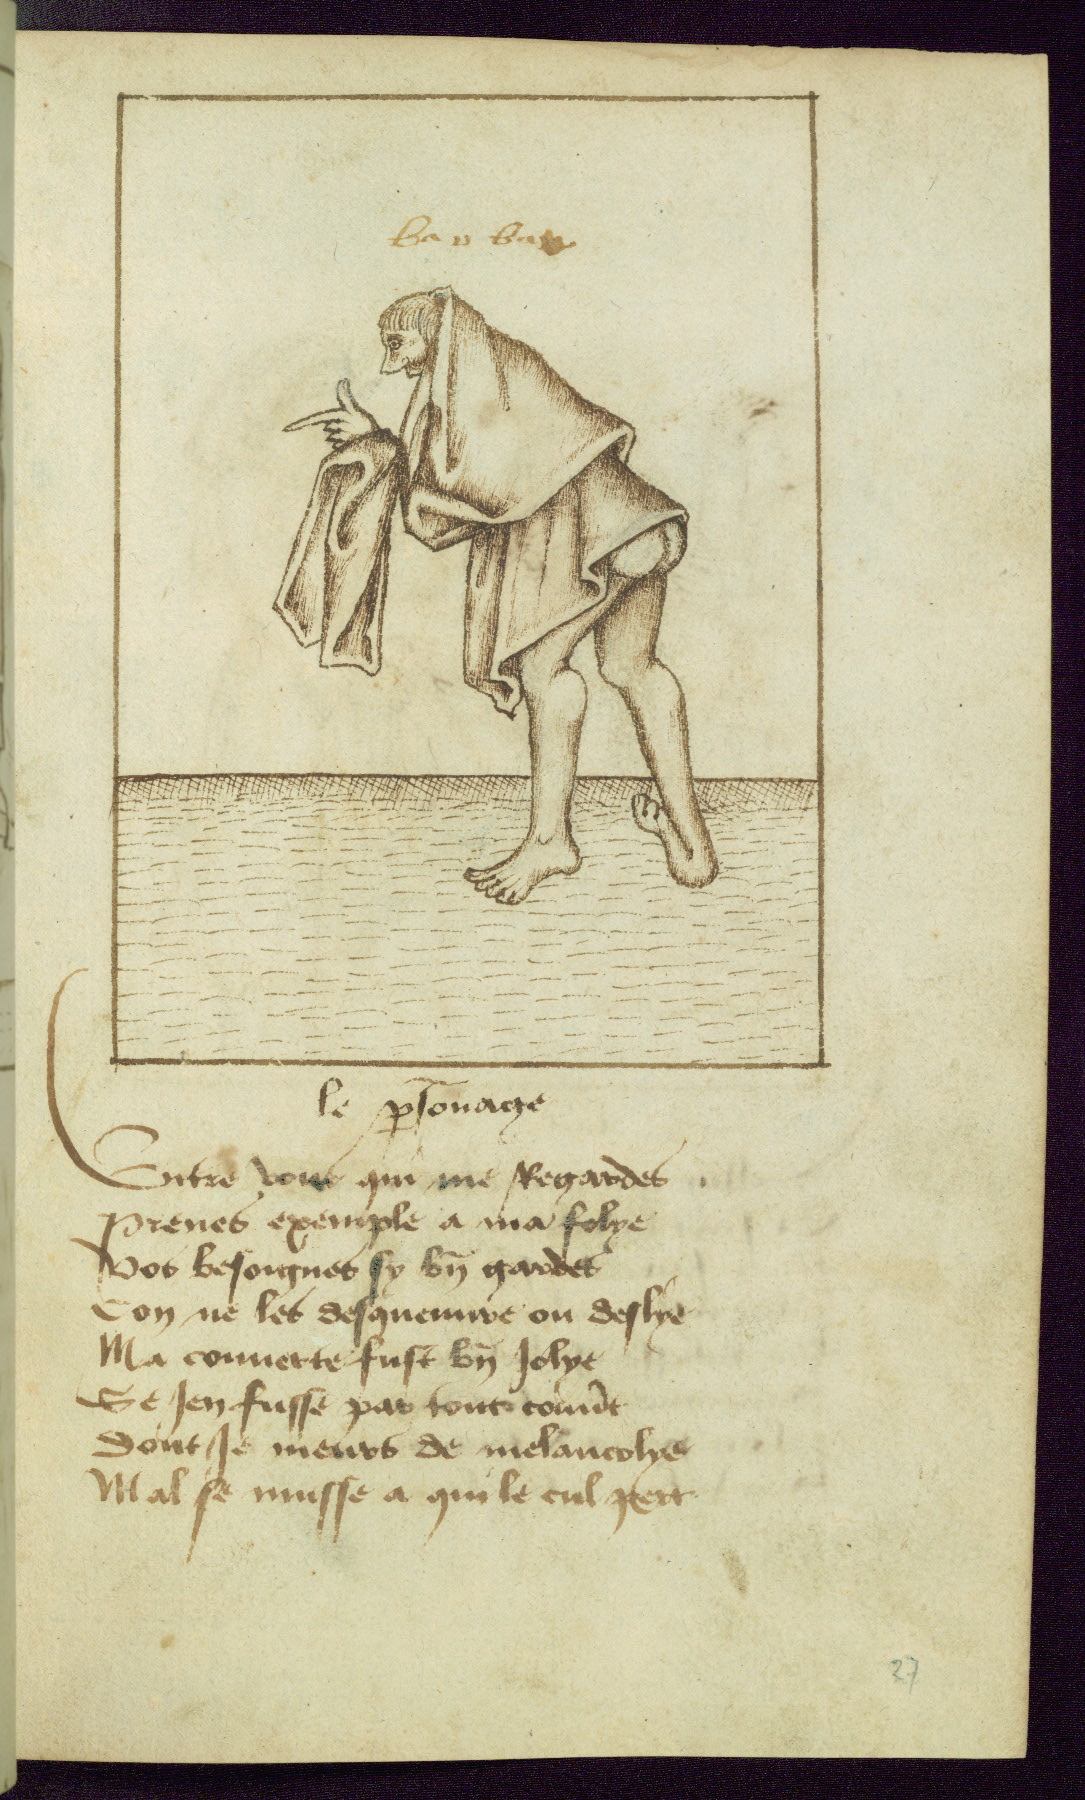 bau bau
le psonage
Entre vous qui me Regardes
Prenes exemple a ma folye
Vos besoignes sy bn gardes
Con ne les desqueuure ou deslye
Ma couuerte fust bn Jolye
Se Jen fusse par tout couuert
Dont Je meurs de melancolye
Mal se musse a qui le cul pert
27